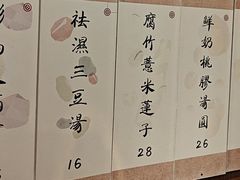 鮮奶桃膠湯圓
26
腐竹薏米蓮子
28
祛濕三豆湯
16